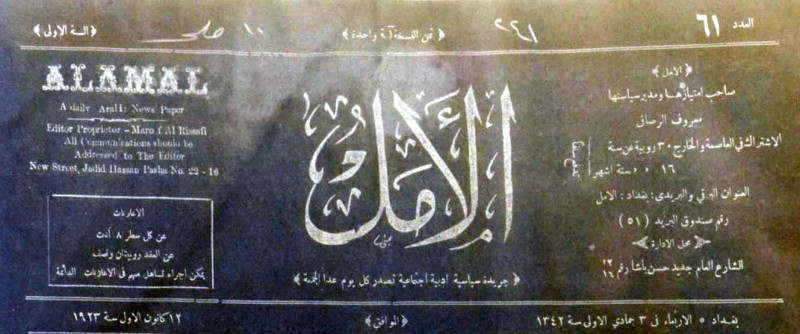 العدد ٦١
﴿ ثمن النسخة آنة واحدة ﴾
﴿ السنة الاولى ﴾
٢٤١
١٠
﴿ الامل ﴾
صاحب امتيازها ومدير سياستها
معروف الرصافي
الاشتراك في العاصمة والخارج ٣٠ روبية عن سنة
١٦ » » ستة اشهر
العنوان البرقي والبريدي: بغداد: الامل
رقم صندوق البريد ( ٥١ )
محل الادارة
الشارع العام جديد حسن باشا رقم ٢٢ ١٦
الأمل
﴿ جريدة سياسية ادبية اجتماعية تصدر كل يوم عدا الجمعة ﴾
ALAMAL
A daily Arabic News Paper
Editor Proprietor - Marof Al Rissafi
All Communications should be
Addressed to The Editor
New Street, Jadid Hassan Pasha No. 22 - 16
الاعلانات
عن كل سطر ٨ آنات
عن العقد روبيتان ونصف
يمكن اجراء تساهل مهم في الاعلانات الدائمة
بغداد * الاربعاء في ٣ جمادي الاولى سنة ١٣٤٢
﴿ الموافق ﴾
١٢ كانون الاول سنة ١٩٢٣